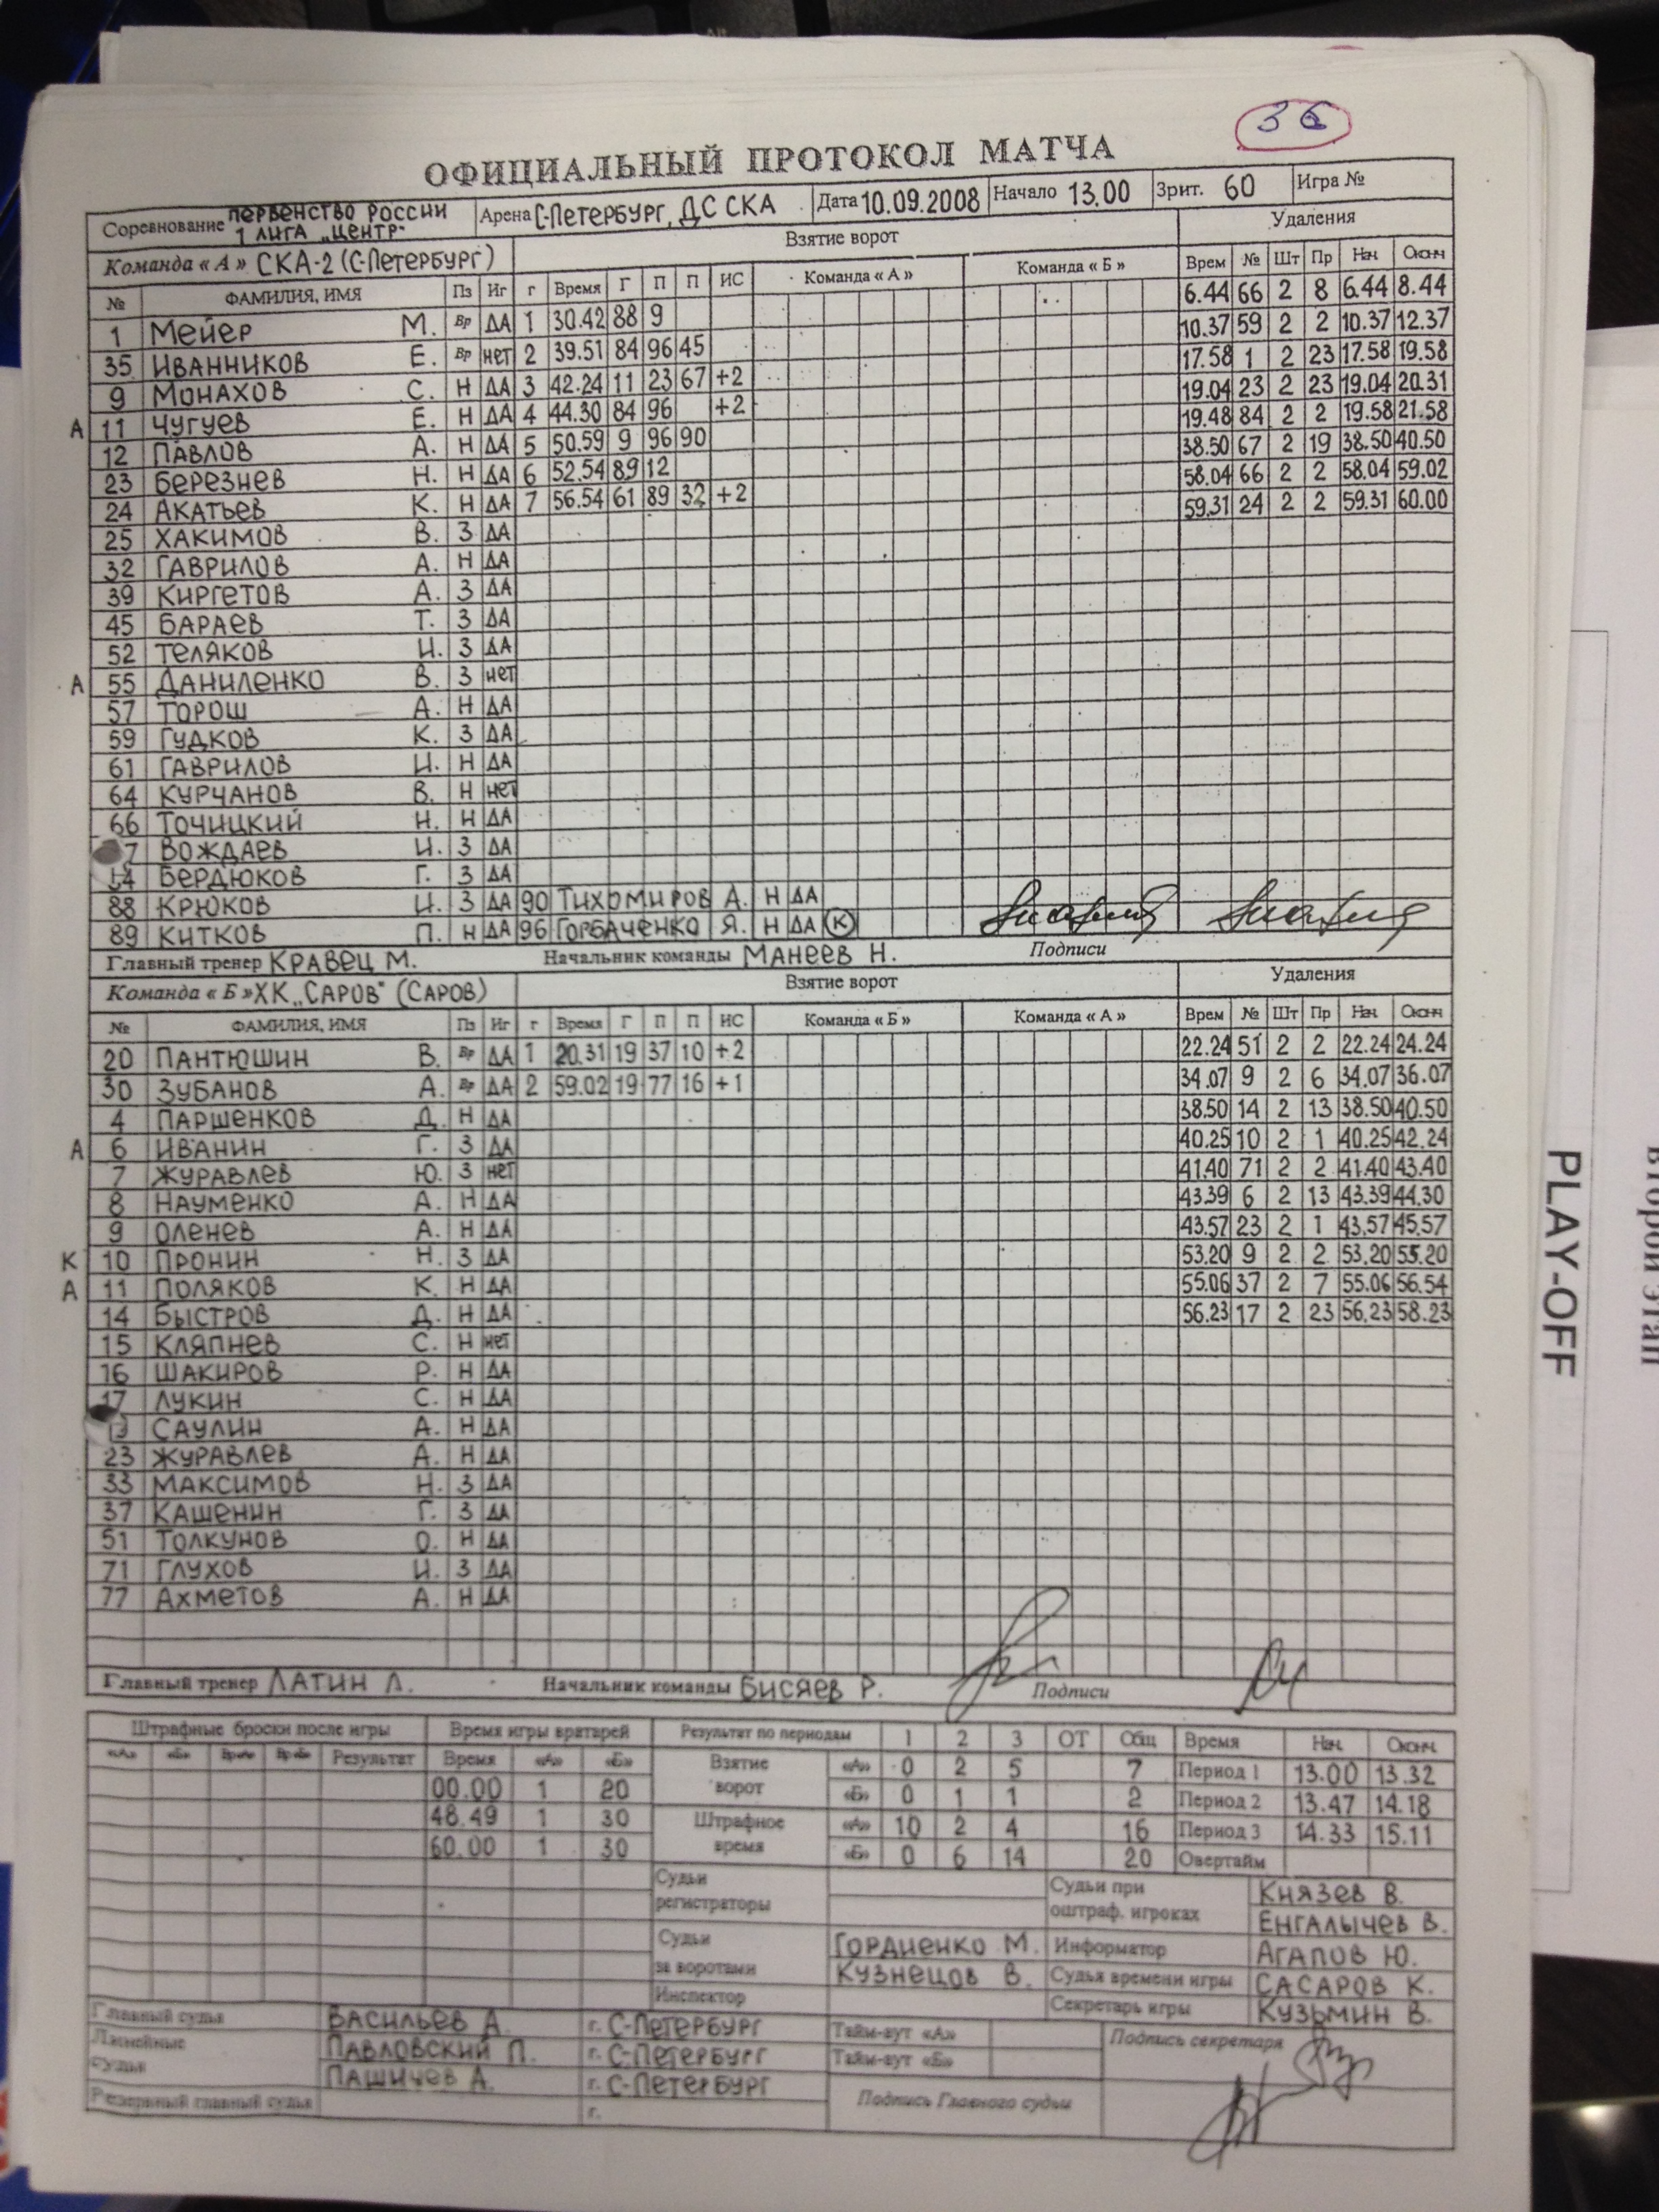 36
ОФИЦИАЛЬНЫЙ ПРОТОКОЛ МАТЧА
Соревнование ПЕРВЕНСТВО РОССИИ 1 ЛИГА „ЦЕНТР" Арена С-ПЕТЕРБУРГ, ДС СКА Дата 10.09.2008 Начало 13.00 Зрит. 60 Игра №
Команда « А » СКА-2 (С-ПЕТЕРБУРГ) Взятие ворот Удаления
№ ФАМИЛИЯ, ИМЯ Пз Иг г Время Г П П ИС Команда « А » Команда « Б » Врем № Шт Пр Нач Оконч
6.44 66 2 8 6.44 8.44
1 МЕЙЕР М. Вр ДА 1 30.42 88 9 10.37 59 2 2 10.37 12.37
35 ИВАННИКОВ Е. Вр НЕТ 2 39.51 84 96 45 17.58 1 2 23 17.58 19.58
9 МОНАХОВ С. Н ДА 3 42.24 11 23 67 +2 19.04 23 2 23 19.04 20.31
А 11 ЧУГУЕВ Е. Н ДА 4 44.30 84 96 +2 19.48 84 2 2 19.58 21.58
12 ПАВЛОВ А. Н ДА 5 50.59 9 96 90 38.50 67 2 19 38.50 40.50
23 БЕРЕЗНЕВ Н. Н ДА 6 52.54 89 12 58.04 66 2 2 58.04 59.02
24 АКАТЬЕВ К. Н ДА 7 56.54 61 89 32 +2 59.31 24 2 2 59.31 60.00
25 ХАКИМОВ В. З ДА
32 ГАВРИЛОВ А. Н ДА
39 КИРГЕТОВ А. З ДА
45 БАРАЕВ Т. З ДА
52 ТЕЛЯКОВ И. З ДА
А 55 ДАНИЛЕНКО В. З НЕТ
57 ТОРОШ А. Н ДА
59 ГУДКОВ К. З ДА
61 ГАВРИЛОВ И. Н ДА
64 КУРЧАНОВ В. Н НЕТ
66 ТОЧИЦКИЙ Н. Н ДА
7 ВОЖДАЕВ И. З ДА
4 БЕРДЮКОВ Г. З ДА
88 КРЮКОВ И. З ДА 90 ТИХОМИРОВ А. Н ДА
89 КИТКОВ П. Н ДА 96 ГОРБАЧЕНКО Я. Н ДА К
Главный тренер КРАВЕЦ М. Начальник команды МАНЕЕВ Н. Подписи
Команда « Б » ХК „САРОВ" (САРОВ) Взятие ворот Удаления
№ ФАМИЛИЯ, ИМЯ Пз Иг г Время Г П П ИС Команда « Б » Команда « А » Врем № Шт Пр Нач Оконч
20 ПАНТЮШИН В. Вр ДА 1 20.31 19 37 10 +2 22.24 51 2 2 22.24 24.24
30 ЗУБАНОВ А. Вр ДА 2 59.02 19 77 16 +1 34.07 9 2 6 34.07 36.07
4 ПАРШЕНКОВ Д. Н ДА 38.50 14 2 13 38.50 40.50
А 6 ИВАНИН Г. З ДА 40.25 10 2 1 40.25 42.24
7 ЖУРАВЛЕВ Ю. З НЕТ 41.40 71 2 2 41.40 43.40
8 НАУМЕНКО А. Н ДА 43.39 6 2 13 43.39 44.30
9 ОЛЕНЕВ А. Н ДА 43.57 23 2 1 43.57 45.57
К 10 ПРОНИН Н. З ДА 53.20 9 2 2 53.20 55.20
А 11 ПОЛЯКОВ К. Н ДА 55.06 37 2 7 55.06 56.54
14 БЫСТРОВ Д. Н ДА 56.23 17 2 23 56.23 58.23
15 КЛЯПНЕВ С. Н НЕТ
16 ШАКИРОВ Р. Н ДА
17 ЛУКИН С. Н ДА
САУЛИН А. Н ДА
23 ЖУРАВЛЕВ А. Н ДА
33 МАКСИМОВ Н. З ДА
37 КАШЕНИН Г. З ДА
51 ТОЛКУНОВ О. Н ДА
71 ГЛУХОВ И. З ДА
77 АХМЕТОВ А. Н ДА
Главный тренер ЛАТИН Л. Начальник команды БИСЯЕВ Р. Подписи
Штрафные броски после игры Время игры вратарей Результат по периодам 1 2 3 ОТ Общ Время Нач. Оконч.
«А» «Б» Вр«А» Вр«Б» Результат Время «А» «Б» Взятие ворот «А» 0 2 5 7 Период 1 13.00 13.32
00.00 1 20 «Б» 0 1 1 2 Период 2 13.47 14.18
48.49 1 30 Штрафное время «А» 10 2 4 16 Период 3 14.33 15.11
60.00 1 30 «Б» 0 6 14 20 Овертайм
Судьи регистраторы Судьи при оштраф. игроках КНЯЗЕВ В.
ЕНГАЛЫЧЕВ В.
Судьи за воротами ГОРДИЕНКО М. Информатор АГАПОВ Ю.
КУЗНЕЦОВ В. Судья времени игры САСАРОВ К.
Инспектор Секретарь игры КУЗЬМИН В.
Главный судья ВАСИЛЬЕВ А. г. С-ПЕТЕРБУРГ Тайм-аут «А» Подпись секретаря
Линейные судьи ПАВЛОВСКИЙ П. г. С-ПЕТЕРБУРГ Тайм-аут «Б»
ПАШИЧЕВ А. г. С-ПЕТЕРБУРГ Подпись Главного судьи
Резервный главный судья г.
PLAY-OFF
второй этап